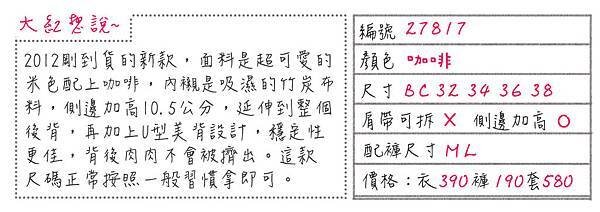 大紅想說~
2012剛到貨的新款，面料是超可愛的
米色配上咖啡，內襯是吸濕的竹炭布
料，側邊加高10.5公分，延伸到整個
後背，再加上U型美背設計，穩定性
更佳，背後肉肉不會被擠出。這款
尺碼正常按照一般習慣拿即可。
編號 27817
顏色 咖啡
尺寸 BC 32 34 36 38
肩帶可拆 X 側邊加高 O
配褲尺寸 ML
價格：衣390褲190套580